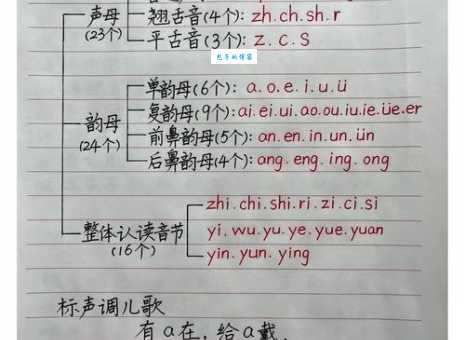 声母
(23个)
翘舌音(4个): zh.ch.sh.r
平舌音(3个): z.c.s
韵母
(24个)
单韵母(6个): a.o.e.i.u.ü
复韵母(9个):ai.ei.ui.ao.ou.iu.ie.üe.er
前鼻韵母(5个): an.en.in.un.ün
后鼻韵母(4个): ang.eng.ing.ong
整体认读音节
(16个)
zhi.chi.shi.ri.zi.ci.si
yi.wu.yu.ye.yue.yuan
yin.yun.ying
标声调儿歌
有a在,给a戴,